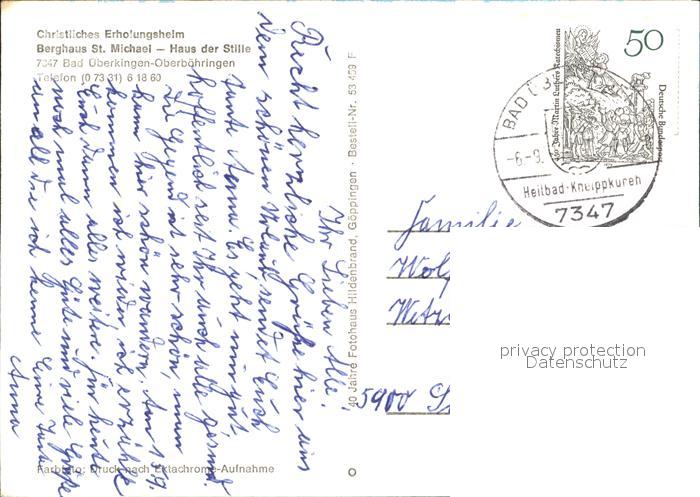 Christliches Erholungsheim
Berghaus St. Michael – Haus der Stille
7347 Bad Überkingen-Oberböhringen
Telefon (0 73 31) 6 18 60
Ihr Lieben Alle!
Recht herzliche Grüße hier aus
dem schönen Urlaub sendet Euch
Tante Anna. Es geht mir gut,
hoffentlich seit Ihr auch alle gesund.
Die Gegend ist sehr schön, man
kann hier schön wandern. Am 15.9.
kommen ich wieder ich erzähle
Euch dann alles weiter. Für heute
noch mal alles Gute und viele Grüße
an all die ich kenne Eure Tante
Anna
Farbfoto: Druck nach Ektachrome-Aufnahme
40 Jahre Fotohaus Hildenbrand, Göppingen · Bestell-Nr. 53 459 F
50
Deutsche Bundespost
450 Jahre Martin Luthers Katechismen
BAD Ü
-6.-9.
Heilbad-Kneippkuren
7347
Familie
Wol
Wetz
5900
privacy protection
Datenschutz